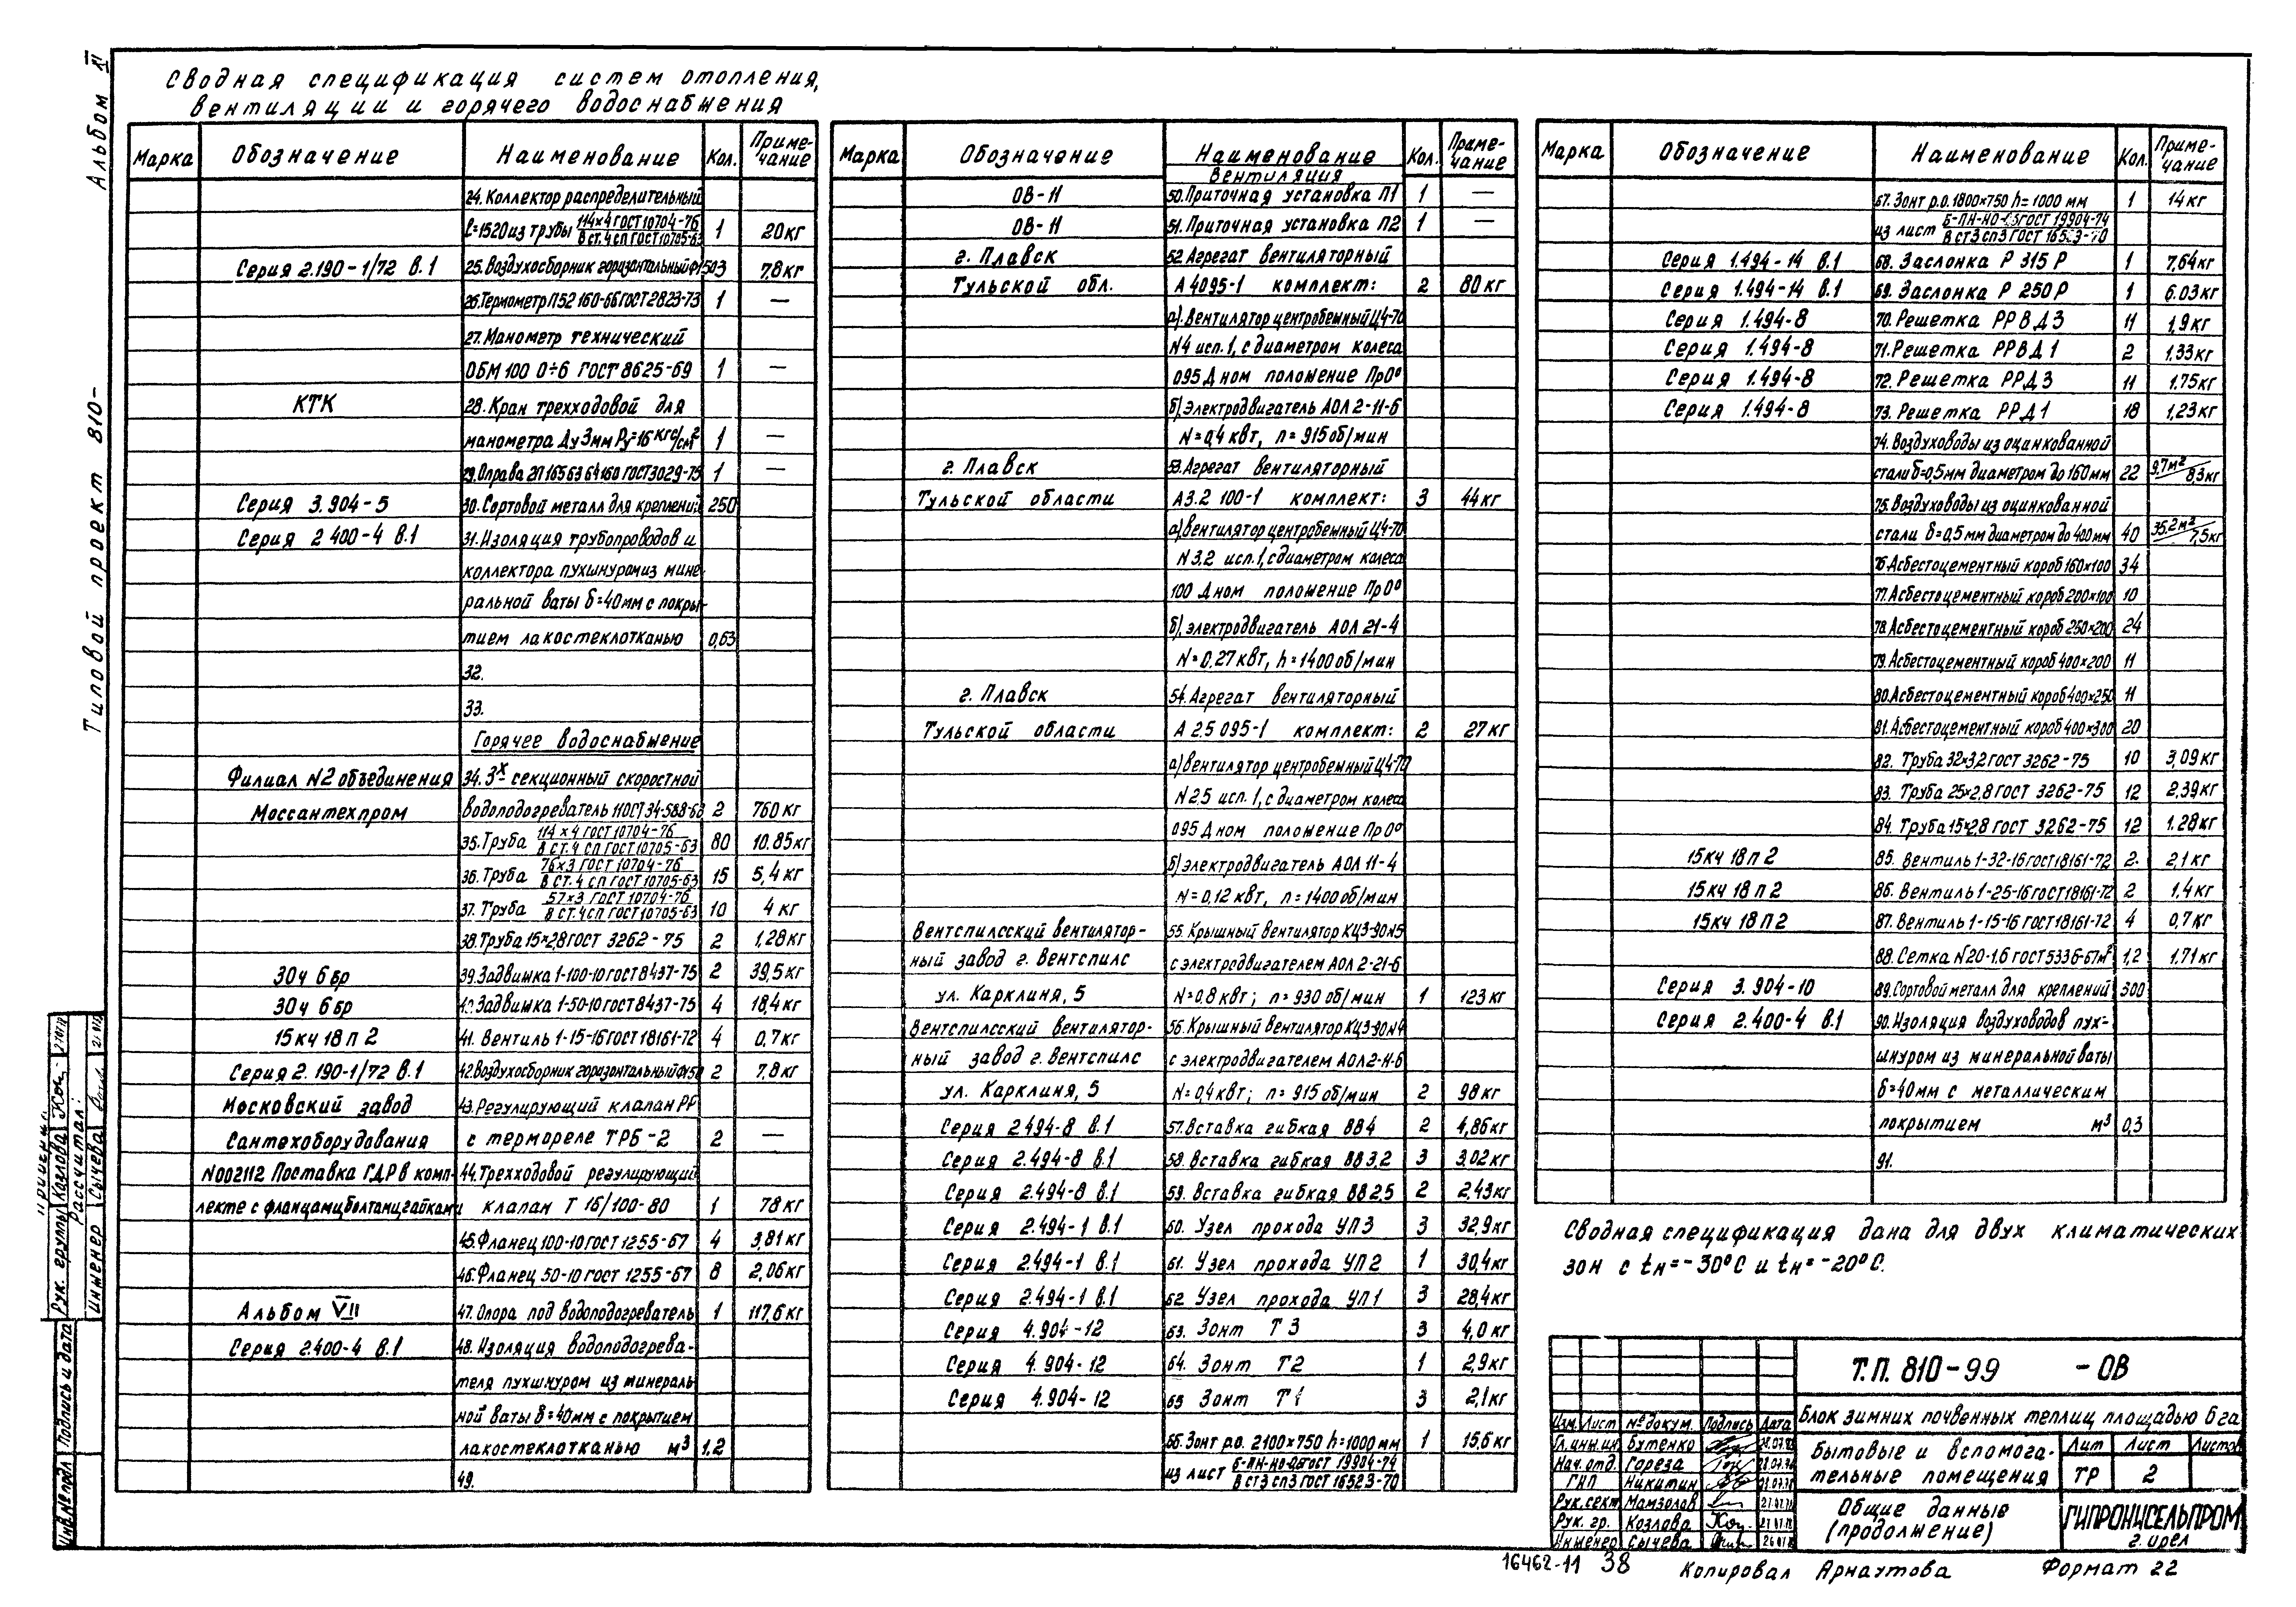 Альбом XI
Типовой проект 810-
Сводная спецификация систем отопления,
вентиляции и горячего водоснабжения
Марка Обозначение Наименование Кол. Приме-
чание
24. Коллектор распределительный
ℓ=1520 из трубы 114×4 ГОСТ 10704-76 / В ст.4 сп ГОСТ 10705-63 1 20 кг
Серия 2.190-1/72 в.1 25. Воздухосборник горизонтальный ф150 3 7,8 кг
26. Термометр П52 160-66 ГОСТ 2823-73 1 —
27. Манометр технический
ОБМ 100 0÷6 ГОСТ 8625-69 1 —
КТК 28. Кран трехходовой для
манометра Ду 3мм Ру=16 кгс/см² 1 —
29. Оправа 2П 165 63 64 160 ГОСТ 3029-75 1 —
Серия 3.904-5 30. Сортовой металл для креплений 250
Серия 2 400-4 в.1 31. Изоляция трубопроводов и
коллектора пухшнуром из мине
ральной ваты δ=40мм с покры-
тием лакостеклотканью 0,63
32.
33.
Горячее водоснабжение
Филиал N2 объединения 34. 3х секционный скоростной
Моссантехпром водоподогреватель 11 ОСТ 34-588-68 2 760 кг
35. Труба 114×4 ГОСТ 10704-76 / В ст.4 сп ГОСТ 10705-63 80 10.85 кг
36. Труба 76×3 ГОСТ 10704-76 / В ст.4 сп ГОСТ 10705-63 15 5,4 кг
37. Труба 57×3 ГОСТ 10704-76 / В ст.4 сп ГОСТ 10705-63 10 4 кг
38. Труба 15×2,8 ГОСТ 3262-75 2 1,28 кг
30ч 6 бр 39. Задвижка 1-100-10 ГОСТ 8437-75 2 39,5 кг
30ч 6 бр 40. Задвижка 1-50-10 ГОСТ 8437-75 4 18,4 кг
15 кч 18 п 2 41. Вентиль 1-15-16 ГОСТ 18161-72 4 0,7 кг
Серия 2.190-1/72 в.1 42. Воздухосборник горизонтальный ф150 2 7,8 кг
Московский завод 43. Регулирующий клапан РР
Сантехоборудования с термореле ТРБ-2 2 —
N002112 Поставка ГДР в комп- 44. Трехходовой регулирующий
лекте с фланцами, болтами, гайками клапан Т 16/100-80 1 78 кг
45. Фланец 100-10 ГОСТ 1255-67 4 3,81 кг
46. Фланец 50-10 ГОСТ 1255-67 8 2,06 кг
Альбом VII 47. Опора под водоподогреватель 1 117,6 кг
Серия 2.400-4 в.1 48. Изоляция водоподогрева-
теля пухшнуром из минераль
ной ваты δ=40мм с покрытием
лакостеклотканью м³ 1.2
49.
Марка Обозначение Наименование Кол. Приме-
чание
Вентиляция
ОВ-11 50. Приточная установка П1 1 —
ОВ-11 51. Приточная установка П2 1 —
г. Плавск 52 Агрегат вентиляторный
Тульской обл. А4095-1 комплект: 2 80 кг
а). Вентилятор центробежный Ц4-70
N4 исп.1, с диаметром колеса
095 Д ном положение Пр0°
б). Электродвигатель АОЛ 2-11-6
N=0,4 квт, n=915 об/мин
г. Плавск 53. Агрегат вентиляторный
Тульской области А3.2 100-1 комплект: 3 44 кг
а) Вентилятор центробежный Ц4-70
N 3.2 исп.1, с диаметром колеса
100 Д ном положение Пр0°
б). электродвигатель АОЛ 21-4
N=0.27 квт, h=1400 об/мин
г. Плавск 54. Агрегат вентиляторный
Тульской области А 2.5 095-1 комплект: 2 27 кг
а) Вентилятор центробежный Ц4-70
N2.5 исп.1, с диаметром колеса
095 Д ном положение Пр0°
б) электродвигатель АОЛ 11-4
N=0,12 квт, n=1400 об/мин
Вентспилсский вентилятор- 55. Крышный вентилятор КЦ3-90 N5
ный завод г. Вентспилс с электродвигателем АОЛ 2-21-6
ул. Карклиня, 5 N=0,8 квт; n=930 об/мин 1 123 кг
Вентспилсский вентилятор- 56. Крышный вентилятор КЦ3-90 N4
ный завод г. Вентспилс с электродвигателем АОЛ2-11-6
ул. Карклиня, 5 N=0,4 квт; n=915 об/мин 2 98 кг
Серия 2.494-8 в.1 57. Вставка гибкая ВВ4 2 4,86 кг
Серия 2.494-8 в.1 58. Вставка гибкая ВВ3.2 3 3,02 кг
Серия 2.494-8 в.1 59. Вставка гибкая ВВ2.5 2 2,43 кг
Серия 2.494-1 в.1 60. Узел прохода УП3 3 32,9 кг
Серия 2.494-1 в.1 61. Узел прохода УП2 1 30,4 кг
Серия 2.494-1 в.1 62 Узел прохода УП1 3 28,4 кг
Серия 4.904-12 63. Зонт Т3 3 4,0 кг
Серия 4.904-12 64. Зонт Т2 1 2,9 кг
Серия 4.904-12 65 Зонт Т1 3 2,1 кг
66. Зонт р.о. 2100×750 h=1000 мм 1 15,6 кг
из лист Б-ПН-НО-0,5 ГОСТ 19904-74 / В ст3 сп3 ГОСТ 16523-70
Марка Обозначение Наименование Кол. Приме-
чание
67. Зонт р.о. 1800×750 h=1000 мм 1 14 кг
из лист Б-ПН-НО-0,5 ГОСТ 19904-74 / В ст3 сп3 ГОСТ 16523-70
Серия 1.494-14 в.1 68. Заслонка Р 315 Р 1 7,64 кг
Серия 1.494-14 в.1 69. Заслонка Р 250 Р 1 6.03 кг
Серия 1.494-8 70. Решетка РРВД3 11 1,9 кг
Серия 1.494-8 71. Решетка РРВД1 2 1,33 кг
Серия 1.494-8 72. Решетка РРД3 11 1.75 кг
Серия 1.494-8 73. Решетка РРД1 18 1,23 кг
74. Воздуховоды из оцинкованной
стали δ=0,5мм диаметром до 160мм 22 9.7 м² / 8,3 кг
75. Воздуховоды из оцинкованной
стали δ=0,5 мм диаметром до 400мм 40 35.2 м² / 7,5 кг
76. Асбестоцементный короб 160×100 34
77. Асбестоцементный короб 200×100 10
78. Асбестоцементный короб 250×200 24
79. Асбестоцементный короб 400×200 11
80. Асбестоцементный короб 400×250 11
81. Асбестоцементный короб 400×300 20
82. Труба 32×3,2 ГОСТ 3262-75 10 3,09 кг
83. Труба 25×2,8 ГОСТ 3262-75 12 2,39 кг
84. Труба 15×2,8 ГОСТ 3262-75 12 1.28 кг
15 кч 18 п 2 85. Вентиль 1-32-16 ГОСТ 18161-72 2. 2,1 кг
15 кч 18 п 2 86. Вентиль 1-25-16 ГОСТ 18161-72 2 1,4 кг
15 кч 18 п 2 87. Вентиль 1-15-16 ГОСТ 18161-72 4 0,7 кг
88. Сетка N20-1.6 ГОСТ 5336-67 м² 1,2 1,71 кг
Серия 3.904-10 89. Сортовой металл для креплений 300
Серия 2.400-4 в.1 90. Изоляция воздуховодов пух-
шнуром из минеральной ваты
δ=40мм с металлическим
покрытием м³ 0,3
91.
Сводная спецификация дана для двух климатических
зон с tн=-30°С и tн=-20°С.
Т.П. 810-99 -ОВ
Блок зимних почвенных теплиц площадью 6 га
Изм. Лист № докум. Подпись Дата
Гл.инж.ин. Бутенко
Нач. отд. Гореза
ГИП Никитин
Рук. сект. Мамзолов
Рук. гр. Козлова
Инженер Сычева
Бытовые и вспомога-
тельные помещения
Лит Лист Листов
ТР 2
Общие данные
(продолжение)
ГИПРОНИСЕЛЬПРОМ
г. Орел
16462-11 38
Копировал Арнаутова Формат 22
Рук. группы Козлова
Рассчитал:
Инженер Сычева
Подпись и дата
Инв.№ подл